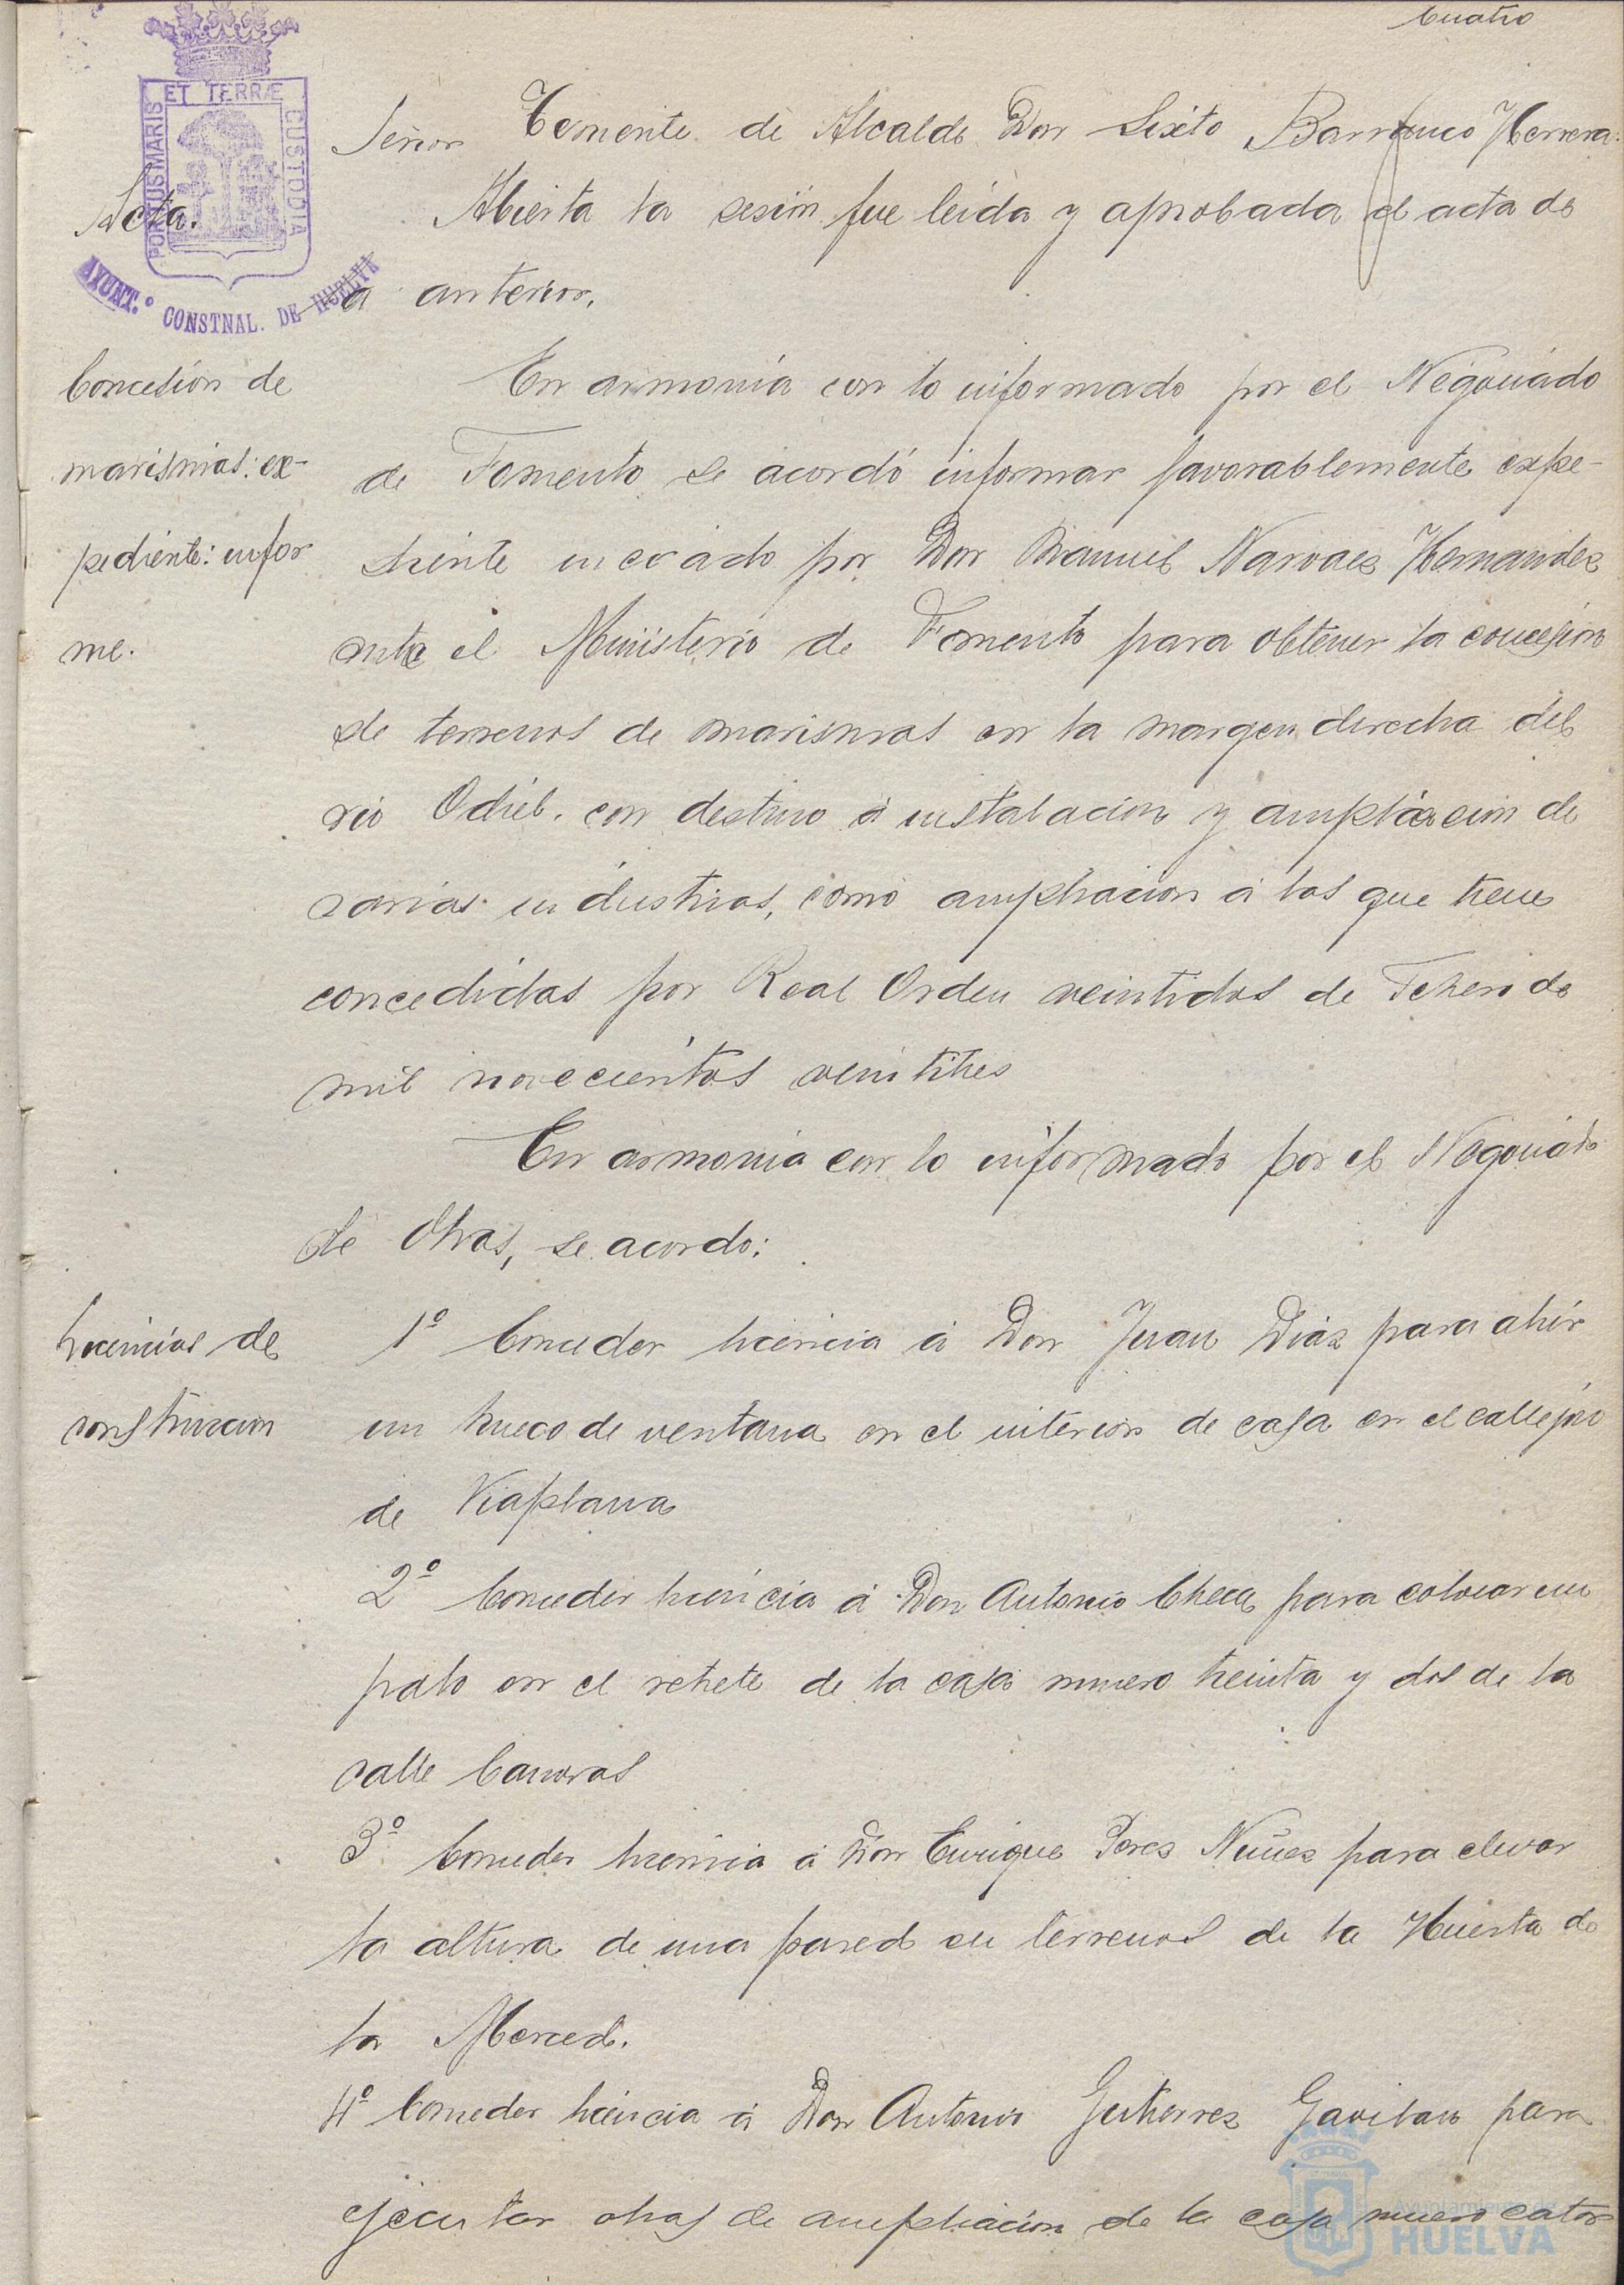 cuatro
PORTUS MARIS ET TERRÆ CUSTODIA
AYUNT.º CONSTNAL. DE HUELVA
Señor Teniente de Alcalde Don Sixto Barranco Herrera.
Acta.
Abierta la sesión fue leída y aprobada el acta de
la anterior.
Concesión de
marismas: ex-
pediente: infor
me.
En armonía con lo informado por el Negociado
de Fomento se acordó informar favorablemente expe-
diente incoado por Don Manuel Narvaez Hernandez
ante el Ministerio de Fomento para obtener la concesión
de terrenos de marismas en la margen derecha del
rio Odiel. con destino á instalacion y ampliacion de
varias industrias, como ampliacion á las que tiene
concedidas por Real Orden veintidos de Febrero de
mil novecientos veintitres
En armonia con lo informado por el Negociado
de Obras, se acordo:
Licencias de
construcción
1º Conceder licencia á Don Juan Diaz para abrir
un hueco de ventana en el interior de casa en el callejon
de Viaplana
2º Conceder licencia á Don Antonio Checa para colocar un
pato en el retrete de la casa numero treinta y dos de la
calle Canovas
3º Conceder licencia á Don Enrique Perez Nuñez para elevar
la altura de una pared en terrenos de la Huerta de
la Merced.
4º Conceder licencia á Don Antonio Gutierrez Gavilan para
ejecutar obras de ampliacion de la casa numero cator
Ayuntamiento de
HUELVA